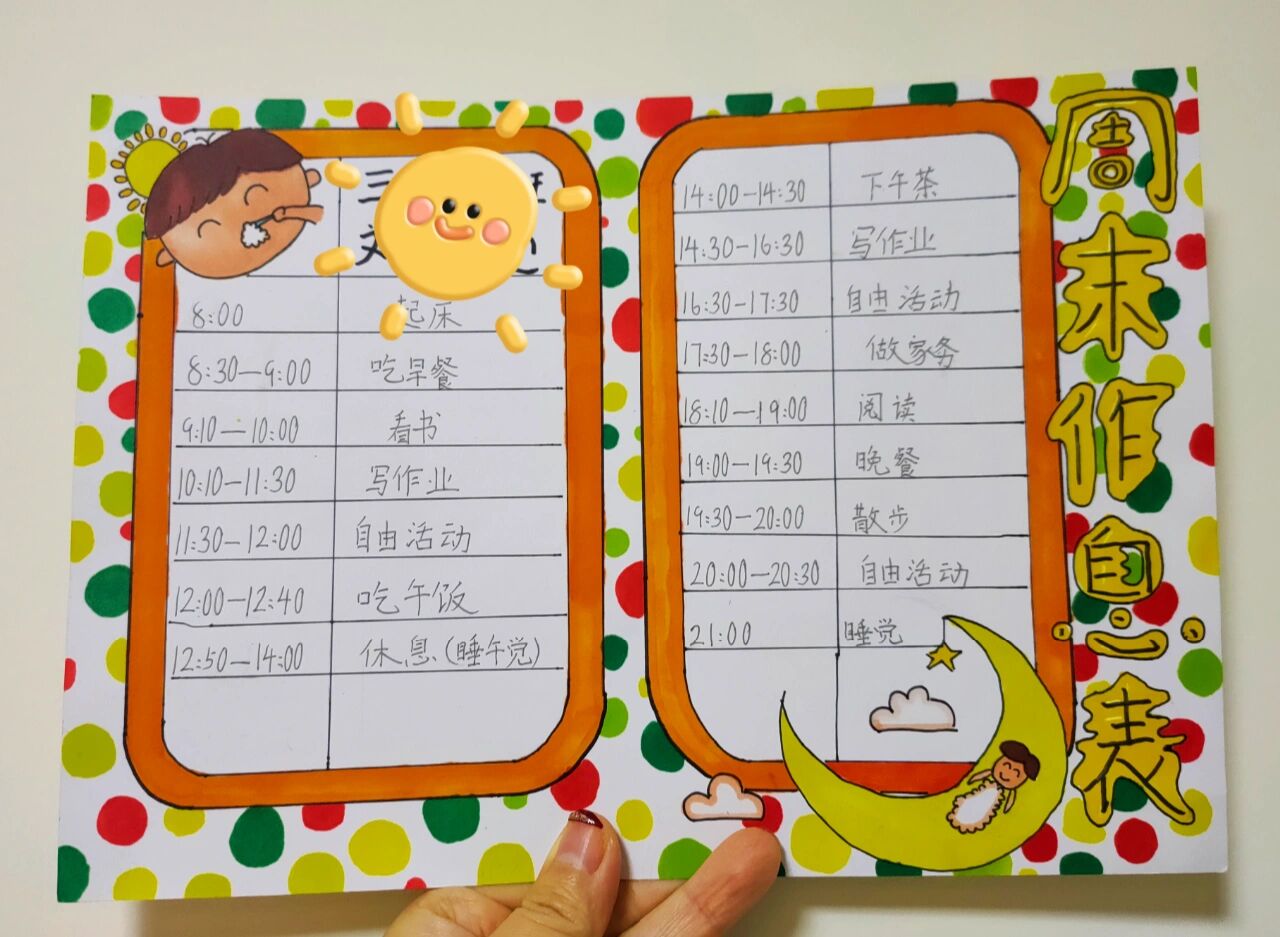 周末作息表
三
8:00 起床
8:30—9:00 吃早餐
9:10—10:00 看书
10:10—11:30 写作业
11:30—12:00 自由活动
12:00—12:40 吃午饭
12:50—14:00 休息(睡午觉)
14:00—14:30 下午茶
14:30—16:30 写作业
16:30—17:30 自由活动
17:30—18:00 做家务
18:10—19:00 阅读
19:00—19:30 晚餐
19:30—20:00 散步
20:00—20:30 自由活动
21:00 睡觉